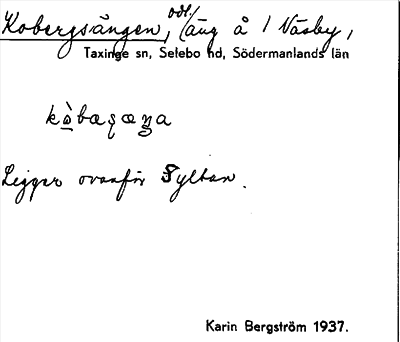 Kobergsängen, odl./äng å 1 Näsby,
Taxinge sn, Selebo hd, Södermanlands län
Ligger ovanför Syltan.
Karin Bergström 1937.